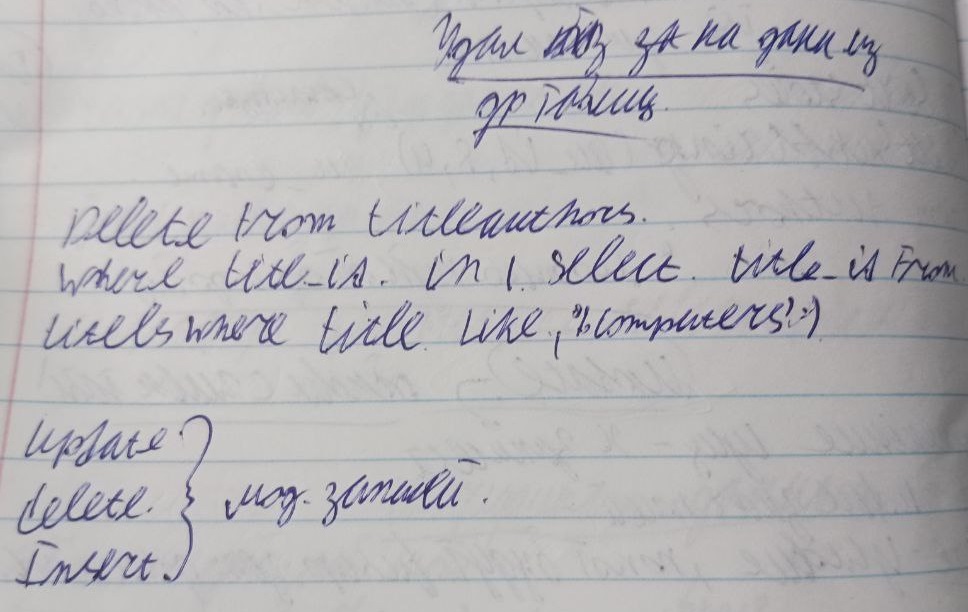 Удал баз зн на данн из
др таблиц.
Delete from titleauthors.
where title_id. in (. select. title_id From
titels where title like, "%computers%")
Update.
delete.
Insert.
} мод. записей.